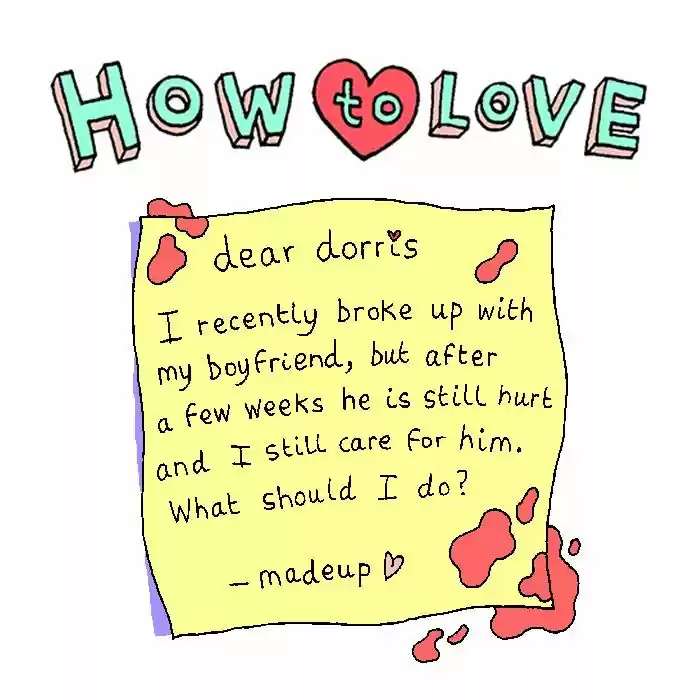 HOW to LOVE
dear dorris
I recently broke up with
my boyfriend, but after
a few weeks he is still hurt
and I still care for him.
What should I do?
– madeup